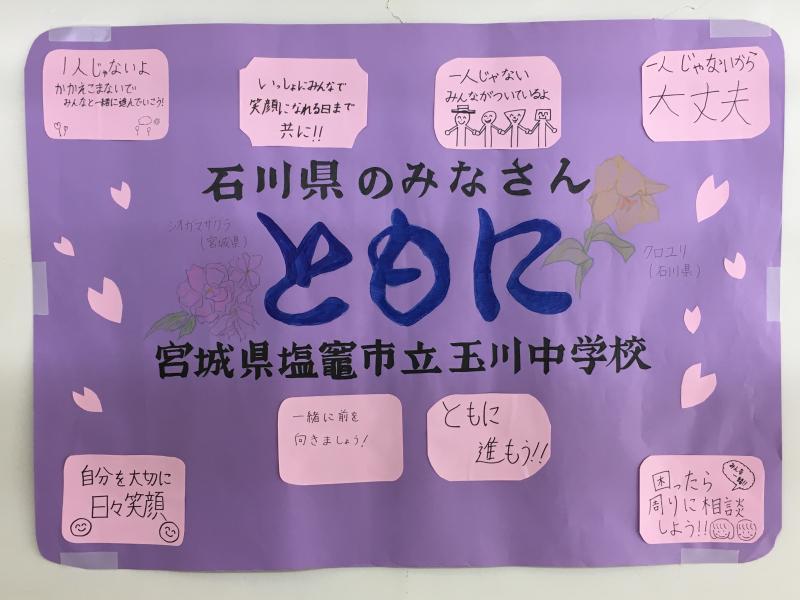 1人じゃないよ
かかえこまないで
みんなと一緒に進んでいこう!
いっしょにみんなで
笑顔になれる日まで
共に!!
一人じゃない
みんながついているよ
一人じゃないから
大丈夫
石川県のみなさん
シオガマザクラ
(宮城県)
ともに
クロユリ
(石川県)
宮城県塩竈市立玉川中学校
一緒に前を
向きましょう!
ともに
進もう!!
自分を大切に
日々笑顔
困ったら
周りに相談
しよう!!
みんな
一緒!!